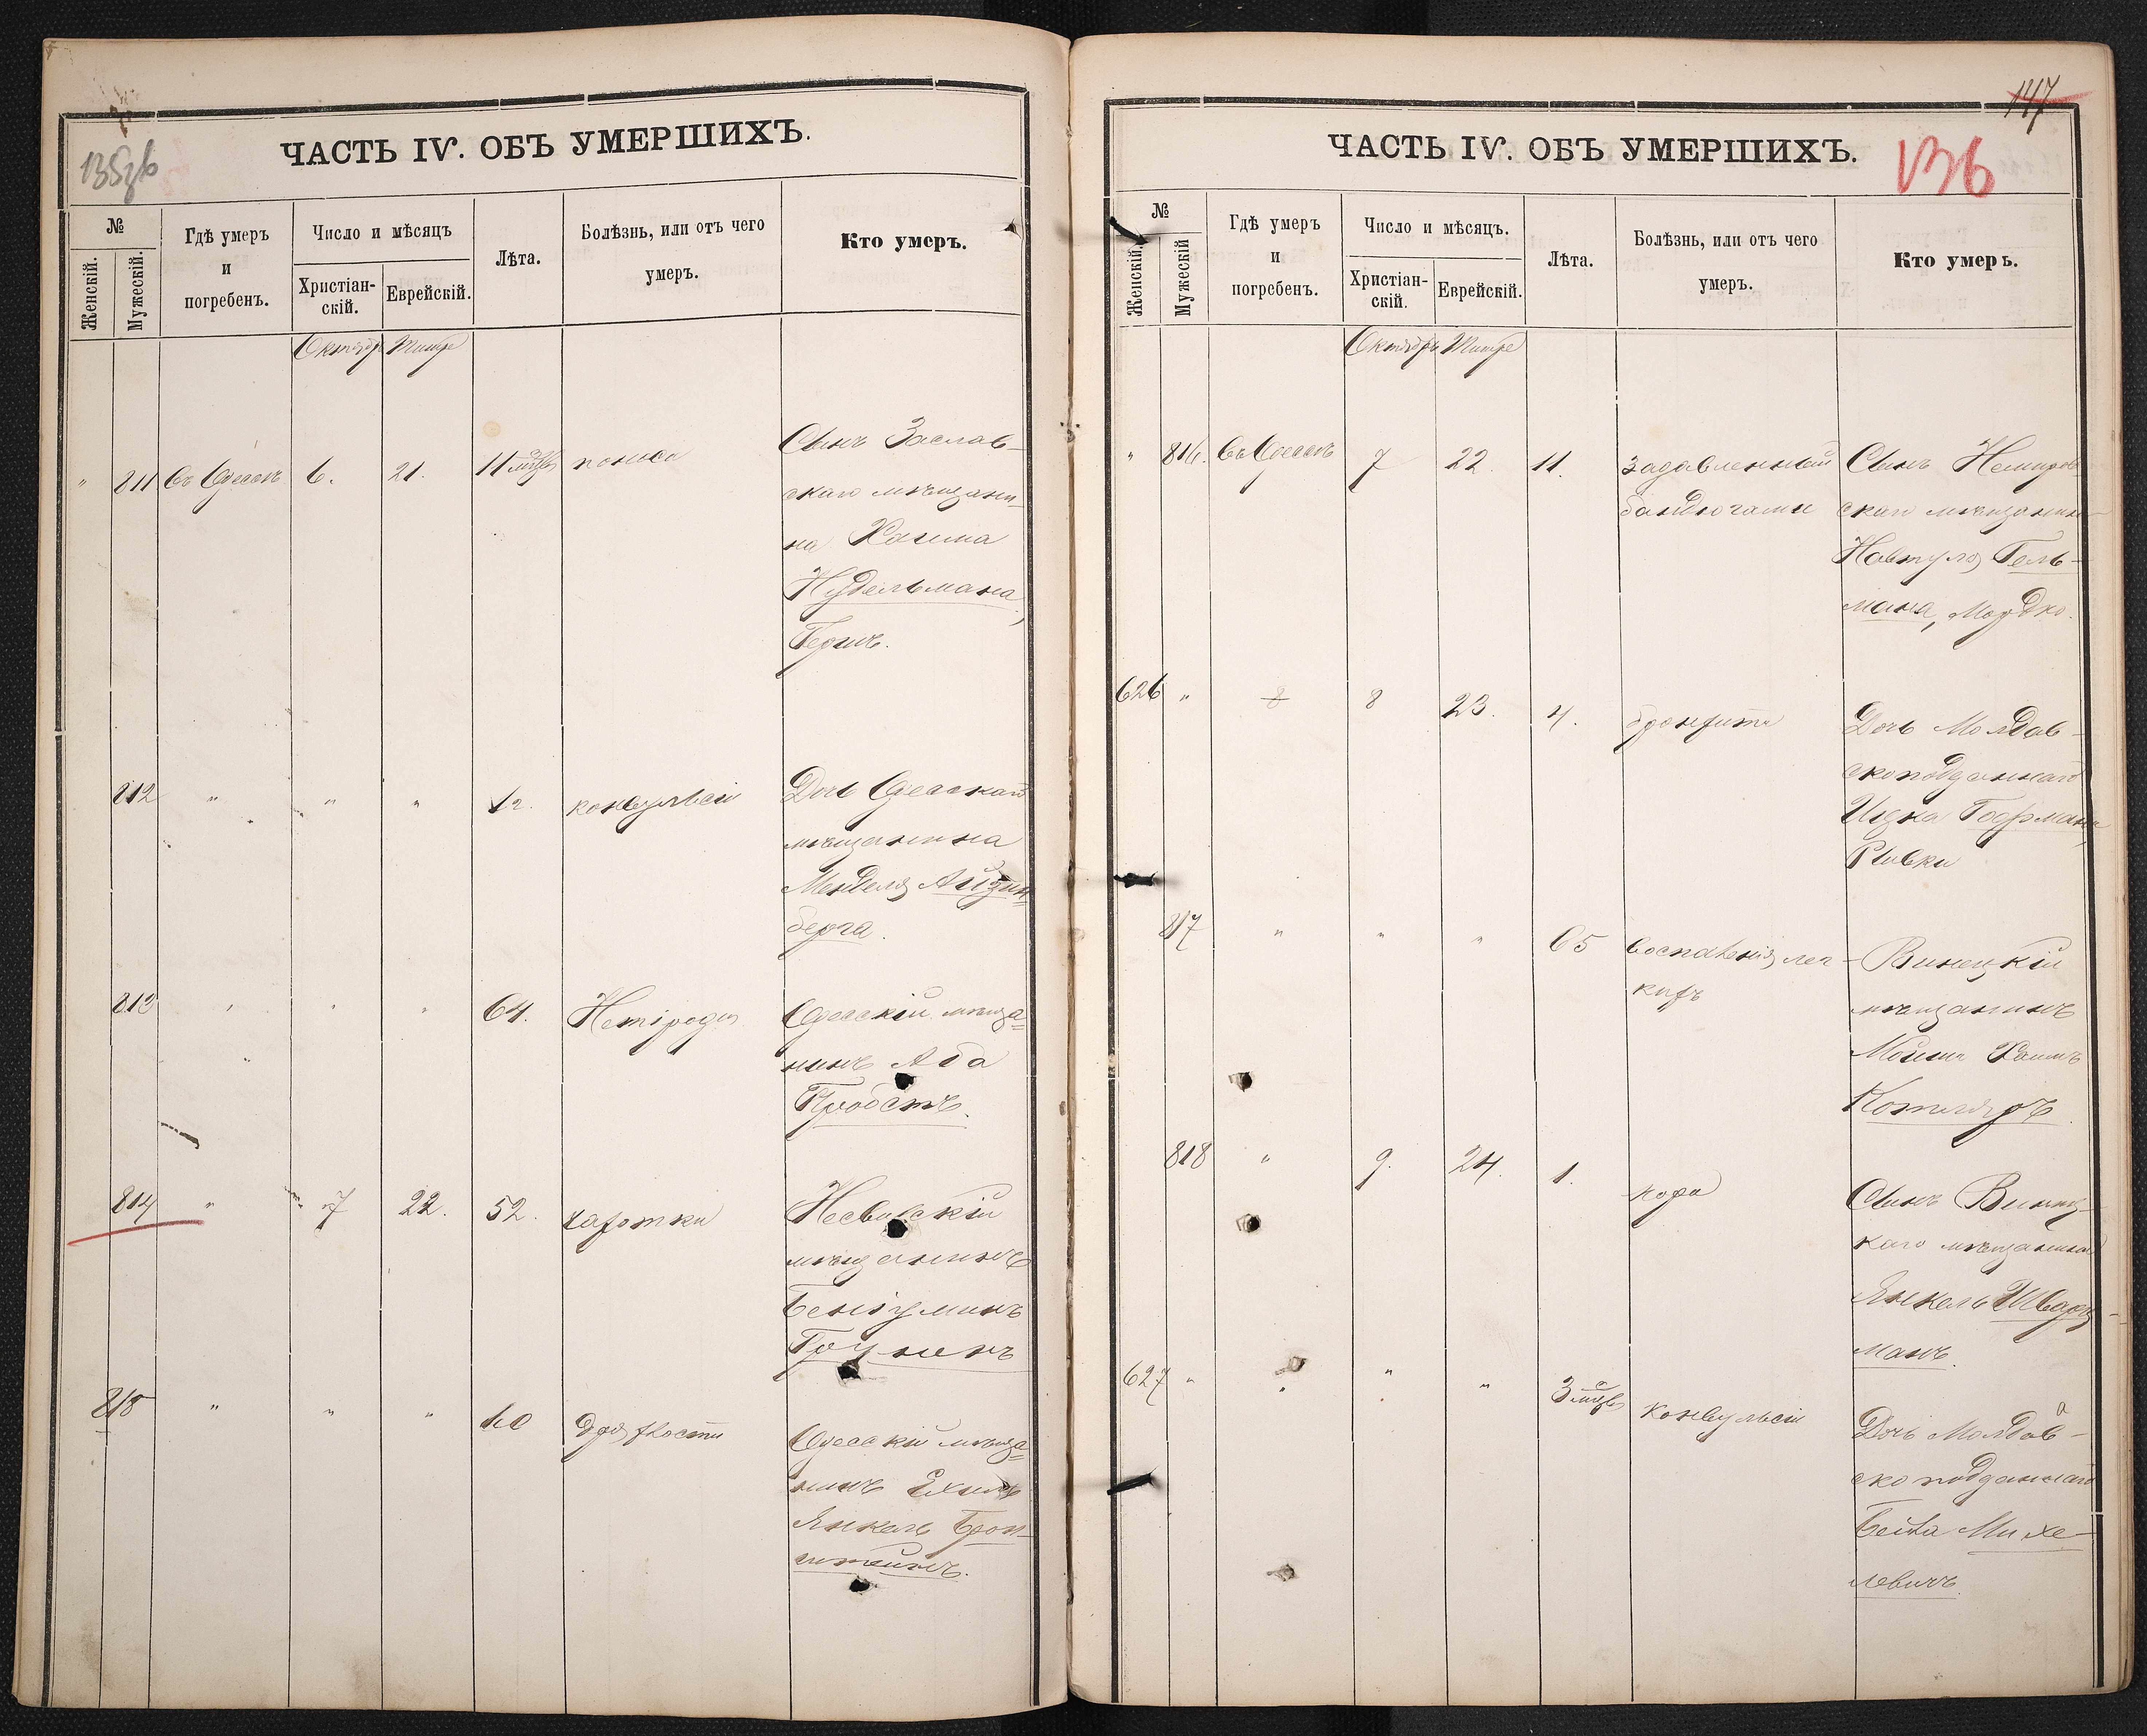 ЧАСТЬ IV. ОБЪ УМЕРШИХЪ.
№
Женскій.
Мужескій.
Гдѣ умеръ
и
погребенъ.
Число и мѣсяцъ
Христіан-
скій.
Еврейскій.
Лѣта.
Болѣзнь, или отъ чего
умеръ.
Кто умеръ.
Октябрь Тишре
" 811 Въ Одессѣ 6. 21. 11 мцвъ поноса
Сынъ Заслав-
скаго мѣщани-
на Хаима
Нудельмана,
Берилъ.
812 " " " конвульсіи
Дочь Одесскаго
мѣщанина
Менделя Айзин-
берга.
813 " " " 64.
Одесскій мѣща-
нинъ Аба
Пробстъ.
814 " 7 22. 52. чахотки
Несвижскій
мѣщанинъ
Беніуминъ
815 " " " дряхлости
Одесскій мѣща-
нинъ Ехиль
Янкель Брон-
штейнъ.
147
ЧАСТЬ IV. ОБЪ УМЕРШИХЪ.
136
№
Женскій.
Мужескій
Гдѣ умеръ
и
погребенъ.
Число и мѣсяцъ.
Христіан-
скій.
Еврейскій.
Лѣта.
Болѣзнь, или отъ чего
умеръ.
Кто умеръ.
Октябрь Тишре
" 816. Въ Одессѣ 7 22. 11. задавленный
биндюгами
Сынъ Немиров-
скаго мѣщанина
Нафтулы Гель-
мана, Мордко.
626 " 8 23. 4. бронхита
Дочь Молдав-
скоподданнаго
Ицка Гофмана,
Ривки
817 " " " воспаленія лег-
кихъ
Винецкій
мѣщанинъ
Мойше Хаимъ
Котляръ.
818 " 9. 24. 1. кора
Сынъ Винниц-
каго мѣщанина
Янкель Шварц-
манъ.
627 " " " 3 мцвъ конвульсіи
Дочь Молдав-
скоподданнаго
Михе-
левичъ.